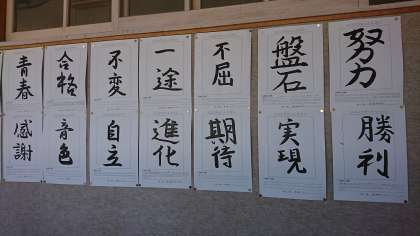 努力
盤石
不屈
一途
不変
合格
青春
勝利
実現
期待
進化
自立
音色
感謝